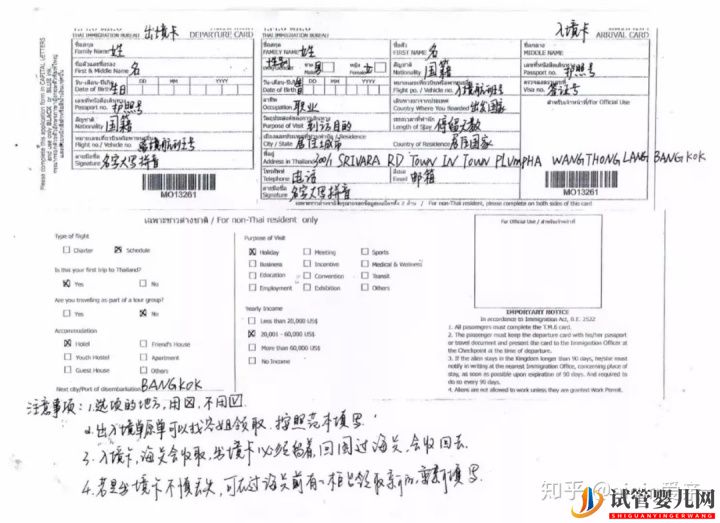 THAI IMMIGRATION BUREAU 出境卡 DEPARTURE CARD
ชื่อสกุล
Family Name 姓
ชื่อตัวและชื่อรอง
First & Middle Name 名
วัน-เดือน-ปีเกิด DD MM YYYY
Date of Birth 生日
Passport no. 护照号
สัญชาติ
Nationality 国籍
Flight no./ Vehicle no.
ลายมือชื่อ
Signature 名字大写拼音
MO13261
Please complete this application form in CAPITAL LETTERS
and use only BLACK or BLUE ink.
THAI IMMIGRATION BUREAU 入境卡 ARRIVAL CARD
ชื่อสกุล
FAMILY NAME 姓
ชื่อตัว
FIRST NAME 名
ชื่อกลาง
MIDDLE NAME
性别
ชาย
Male 男
หญิง
Female 女
สัญชาติ
Nationality 国籍
Passport no. 护照号
วัน-เดือน-ปีเกิด DD MM YYYY
Date of Birth
Flight no./ Vehicle no. 入境航班号
Visa no. 签证号
อาชีพ
Occupation 职业
Country Where You Boarded 出发国家
สำหรับเจ้าหน้าที่/For Official Use
Purpose of Visit 到访目的
Length of Stay 停留天数
City / State 居住城市
Country of Residence 居住国家
ที่อยู่
Address in Thailand SRIVARA RD TOWN IN TOWN PLUMPHA WANGTHONGLANG BANGKOK
โทรศัพท์
Telephone 电话
อีเมล
Email 邮箱
ลายมือชื่อ
Signature 名字大写拼音
MO13261
/ For non-Thai resident, please complete on both sides of this card
เฉพาะชาวต่างชาติ / For non-Thai resident only
Type of flight
☐ Charter ☒ Schedule
Is this your first trip to Thailand?
☒ Yes ☐ No
Are you traveling as part of a tour group?
☐ Yes ☒ No
Accommodation
☒ Hotel ☐ Friend's House
☐ Youth Hostel ☐ Apartment
☐ Guest House ☐ Others
Next city/Port of disembarkation BANGKOK
Purpose of Visit
☒ Holiday ☐ Meeting ☐ Sports
☐ Business ☐ Incentive ☐ Medical & Wellness
☐ Education ☐ Convention ☐ Transit
☐ Employment ☐ Exhibition ☐ Others
Yearly Income
☐ Less than 20,000 US$
☒ 20,001 - 60,000 US$
☐ More than 60,000 US$
☐ No Income
For Official Use / สำหรับเจ้าหน้าที่
IMPORTANT NOTICE
In accordance to Immigration Act, B.E. 2522
1. All passengers must complete the T.M.6 card.
2. The passenger must keep the departure card with his/her passport
or travel document and present the card to the Immigration Officer at
the Checkpoint at the time of departure.
3. If the alien stays in the Kingdom longer than 90 days, he/she must
notify in writing at the nearest Immigration Office, concerning place of
stay, as soon as possible upon expiration of 90 days. And required to
do so every 90 days.
4. Aliens are not allowed to work unless they are granted Work Permit.
注意事项：1.选项的地方，用☒，不用☑
2.出入境单原单可以找空姐领取，按照范本填写
3.入境卡，海关会收取，出境卡必须留着，回国过海关，会收回去。
4.若是出境卡不慎丢失，可在过海关前有一柜台领取新的，重新填写.
知乎
试管婴儿网
SHIGUANYINGERWANG.COM